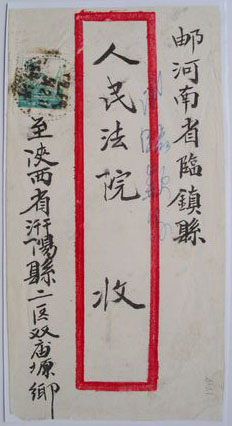 邮河南省臨鎮縣
人民法院 收
至陝西省汧陽縣二区双庙塬鄉